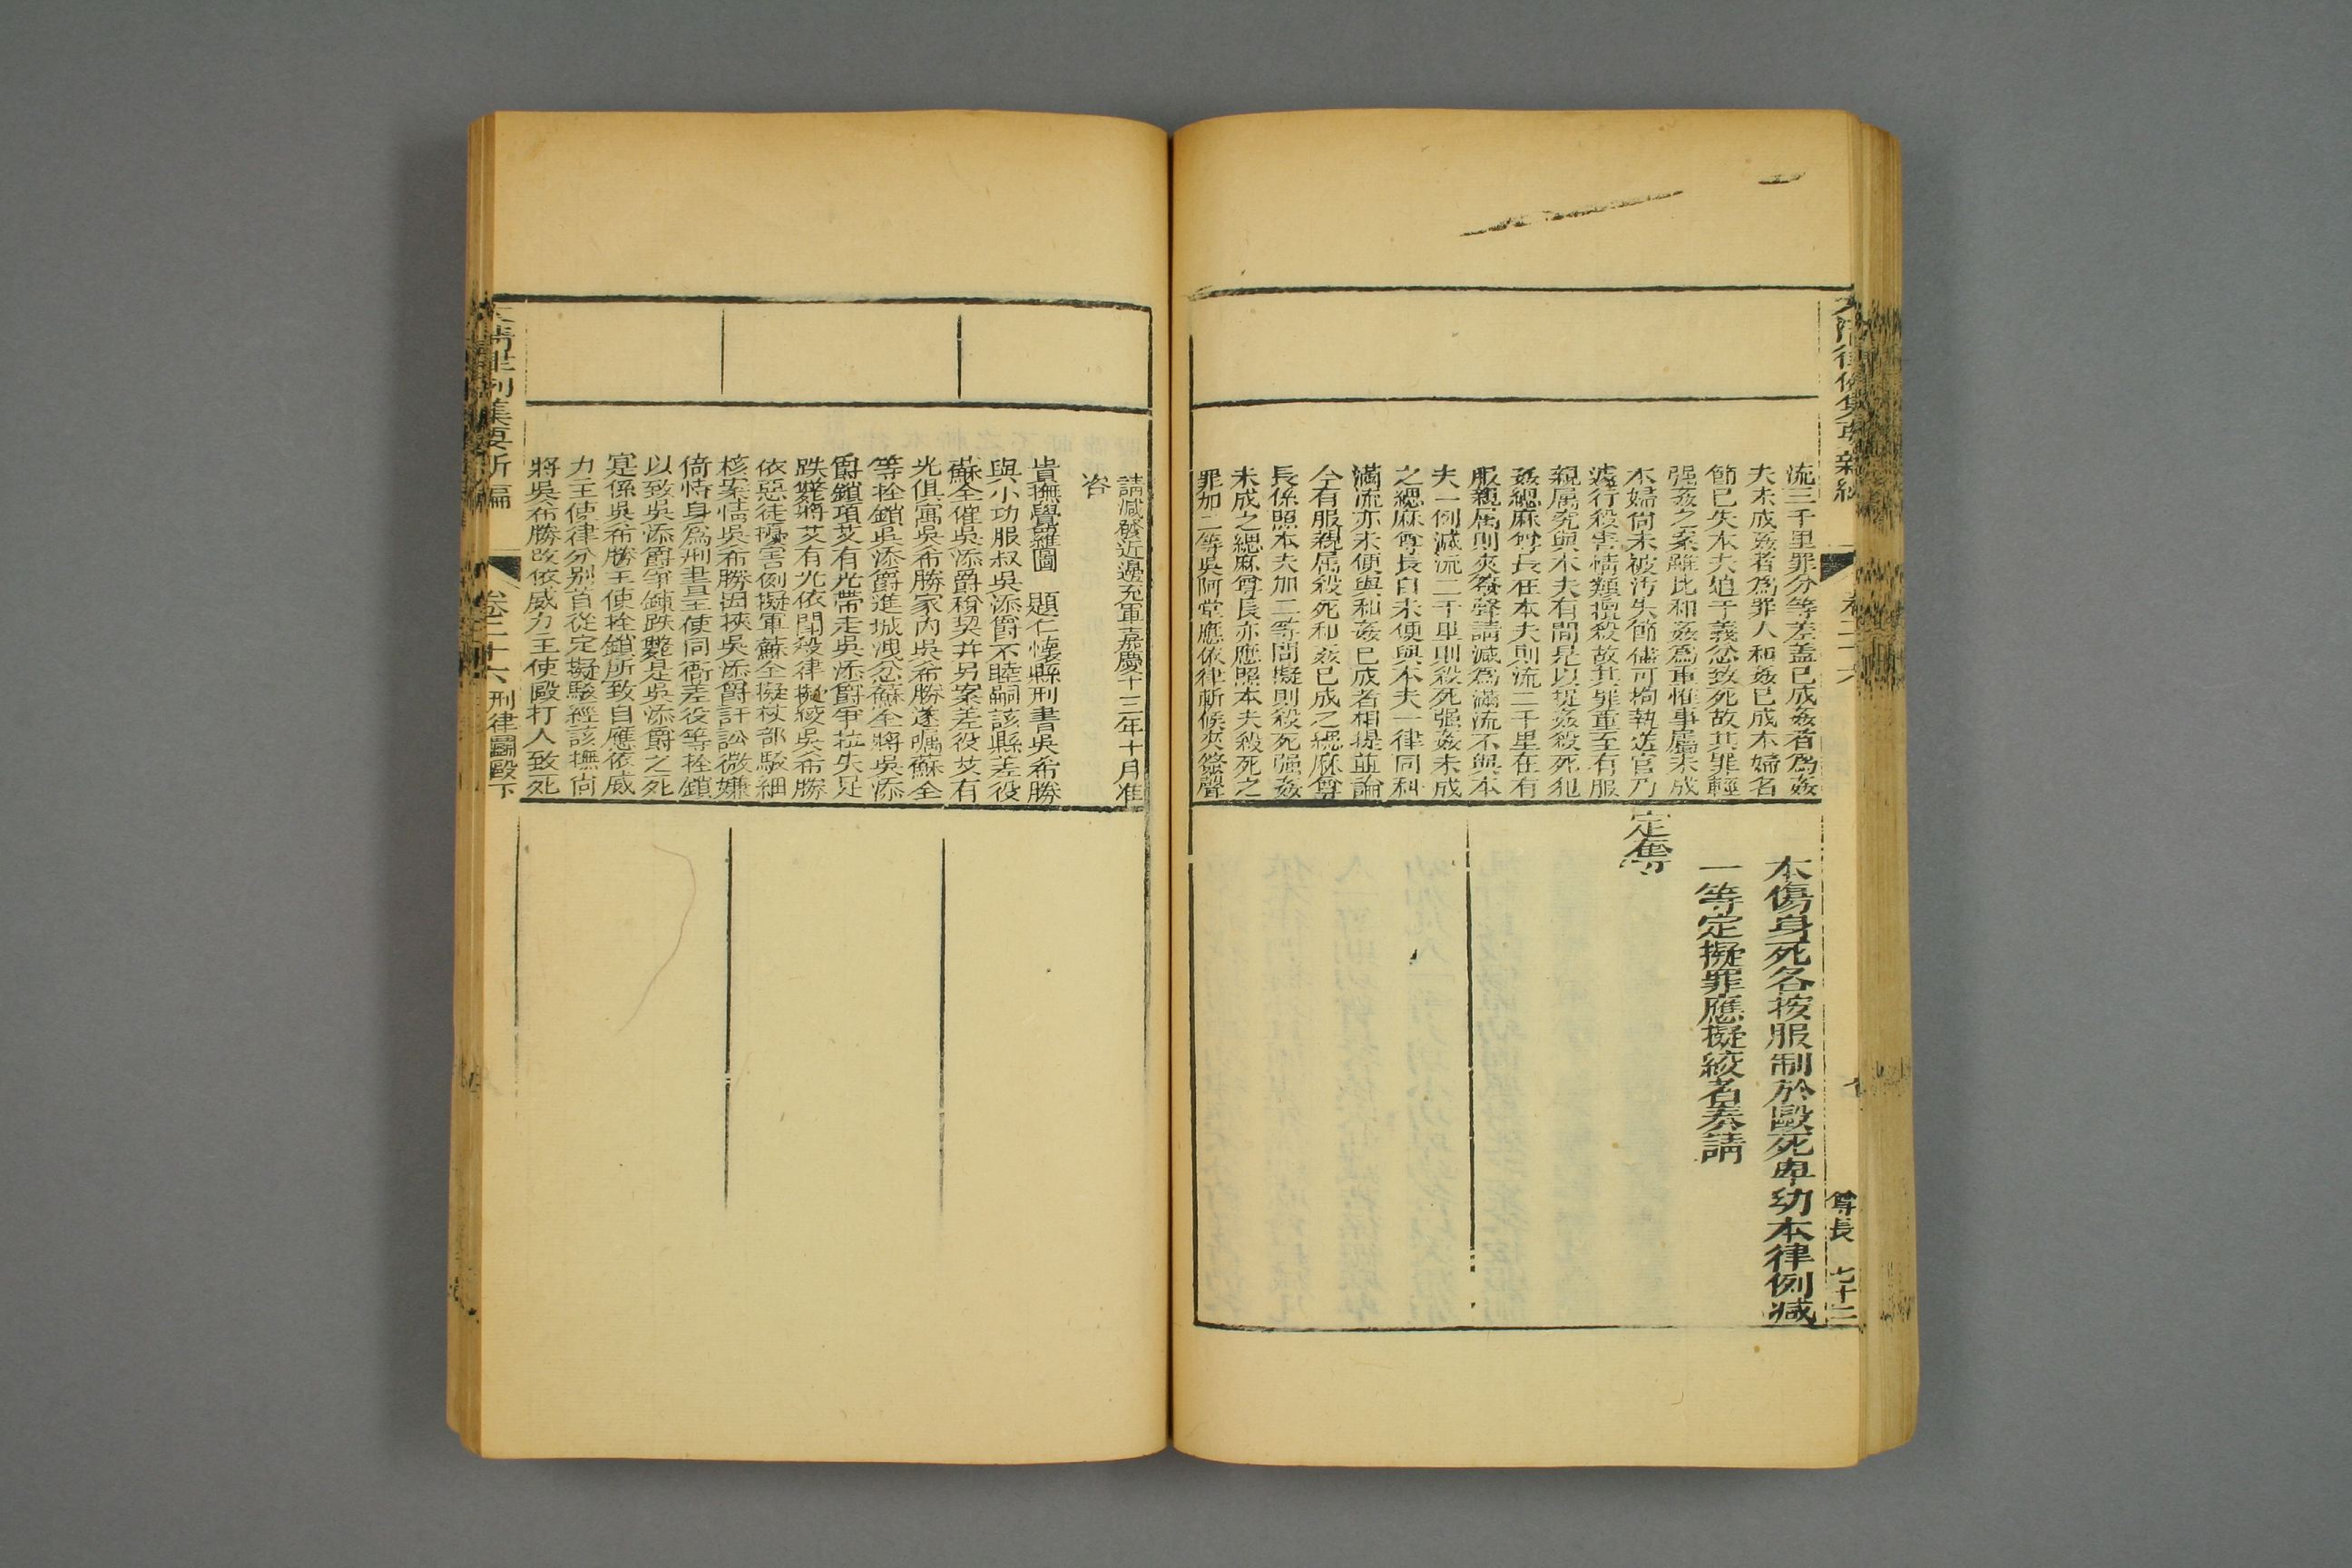 流三千里罪分等差蓋已成姦者為姦
夫未成姦者為罪人和姦已成本婦名
節已失本夫迫于義忿致死故其罪輕
强姦之案雖比和姦為重惟事屬未成
本婦尚未被汚失節儘可拘執送官乃
遽行殺害情類擅殺故其罪重至有服
親属究與本夫有間是以捉姦殺死犯
姦緦麻尊長在本夫則流三千里在有
服親属則夾簽聲請減為滿流不與本
夫一例減流二千里則殺死强姦未成
之緦麻尊長自未便與本夫一律同科
滿流亦未便與和姦已成者相提並論
今有服親属殺死和姦已成之緦麻尊
長係照本夫加二等問擬則殺死强姦
未成之緦麻尊長亦應照本夫殺死之
罪加二等吳阿堂應依律斬候夾簽聲
本傷身死各按服制於毆死卑幼本律例減
一等定擬罪應擬絞者奏請
定奪
卷二十六
尊長
七十二
請減發近邊充軍嘉慶十三年十月准
咨
貴撫
題仁懷縣刑書吳希勝
與小功服叔吳添爵不睦嗣該縣差役
蘇全催吳添爵稅契并另案差役艾有
光俱寓吳希勝家內吳希勝遂囑蘇全
等拴鎖吳添爵進城洩忿蘇全將吳添
爵鎖項艾有光帶走吳添爵爭拉失足
跌斃將艾有光依鬬殺律擬絞吳希勝
依惡徒擾害例擬軍蘇全擬杖部駁細
核案情吳希勝因挾吳添爵訐訟微嫌
倚恃身為刑書主使同衙差役等拴鎖
以致吳添爵爭鎖跌斃是吳添爵之死
寔係吳希勝主使拴鎖所致自應依威
力主使律分别首從定擬駁經該撫尚
將吳希勝改依威力主使毆打人致死
大清律例集要新編
卷二十六
刑律鬬毆下